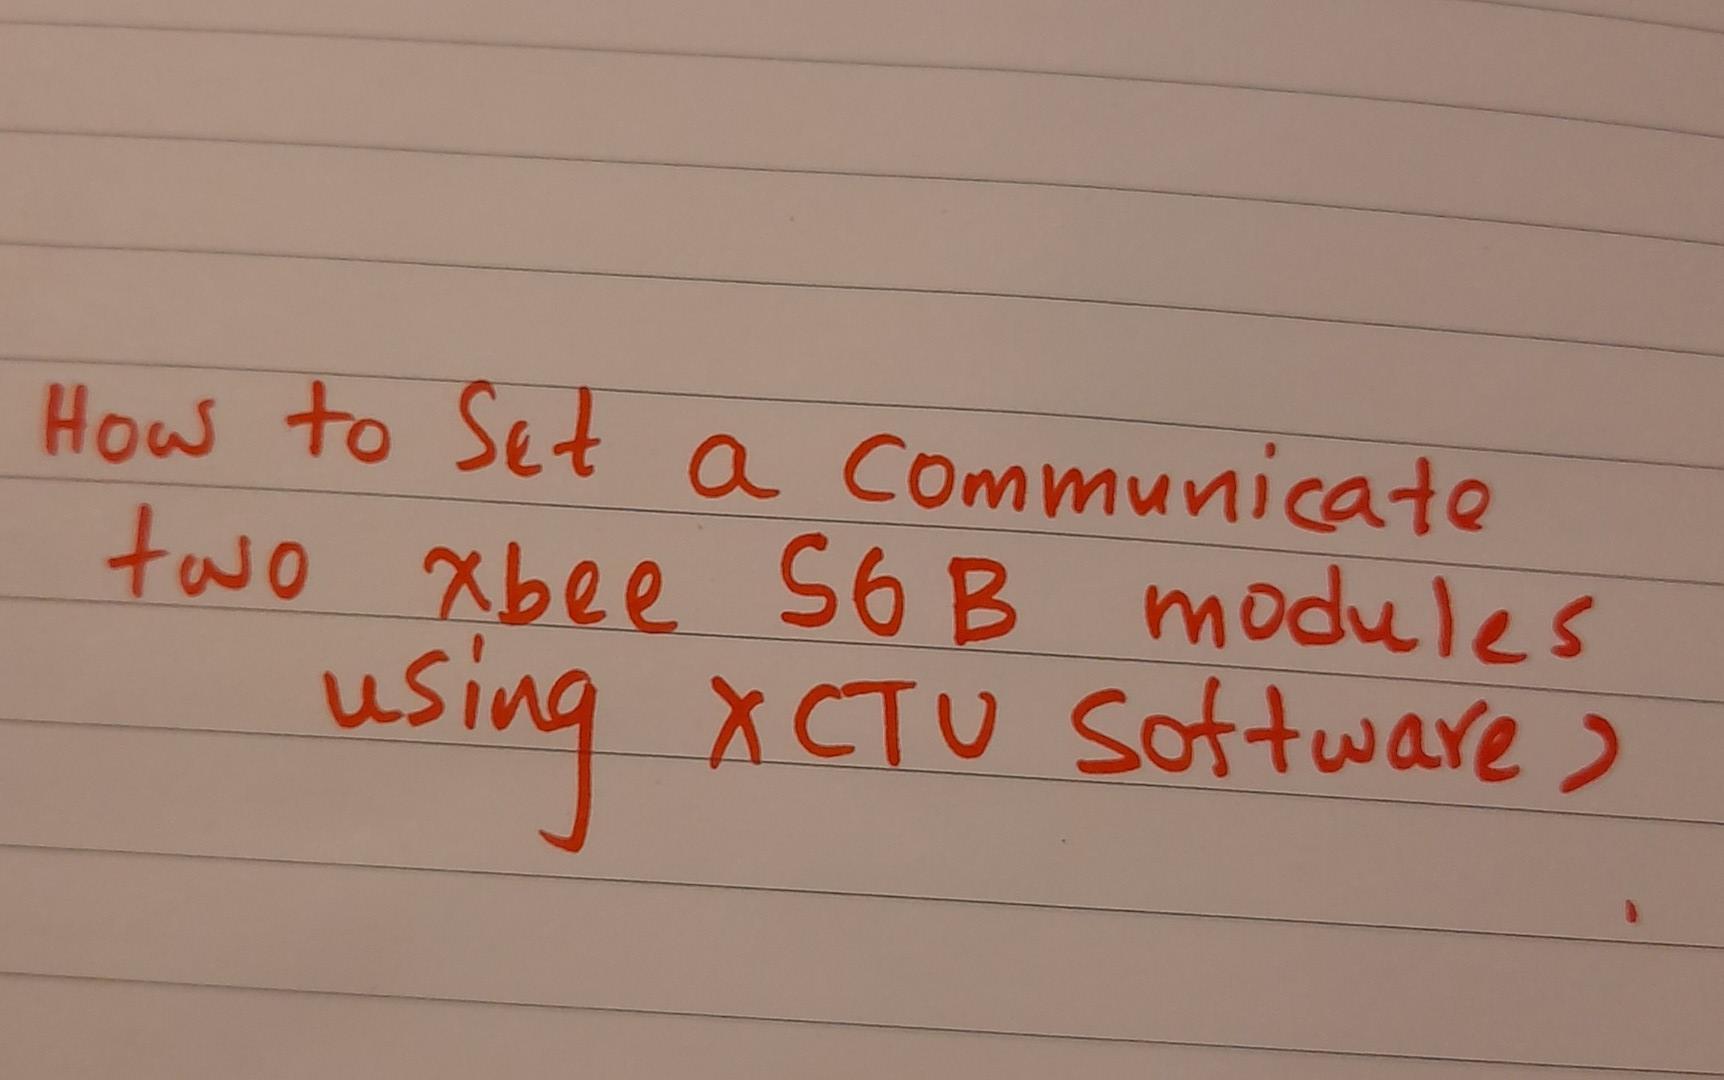 How to Set a communicate
two xbee S6B modules
using XCTU Software?